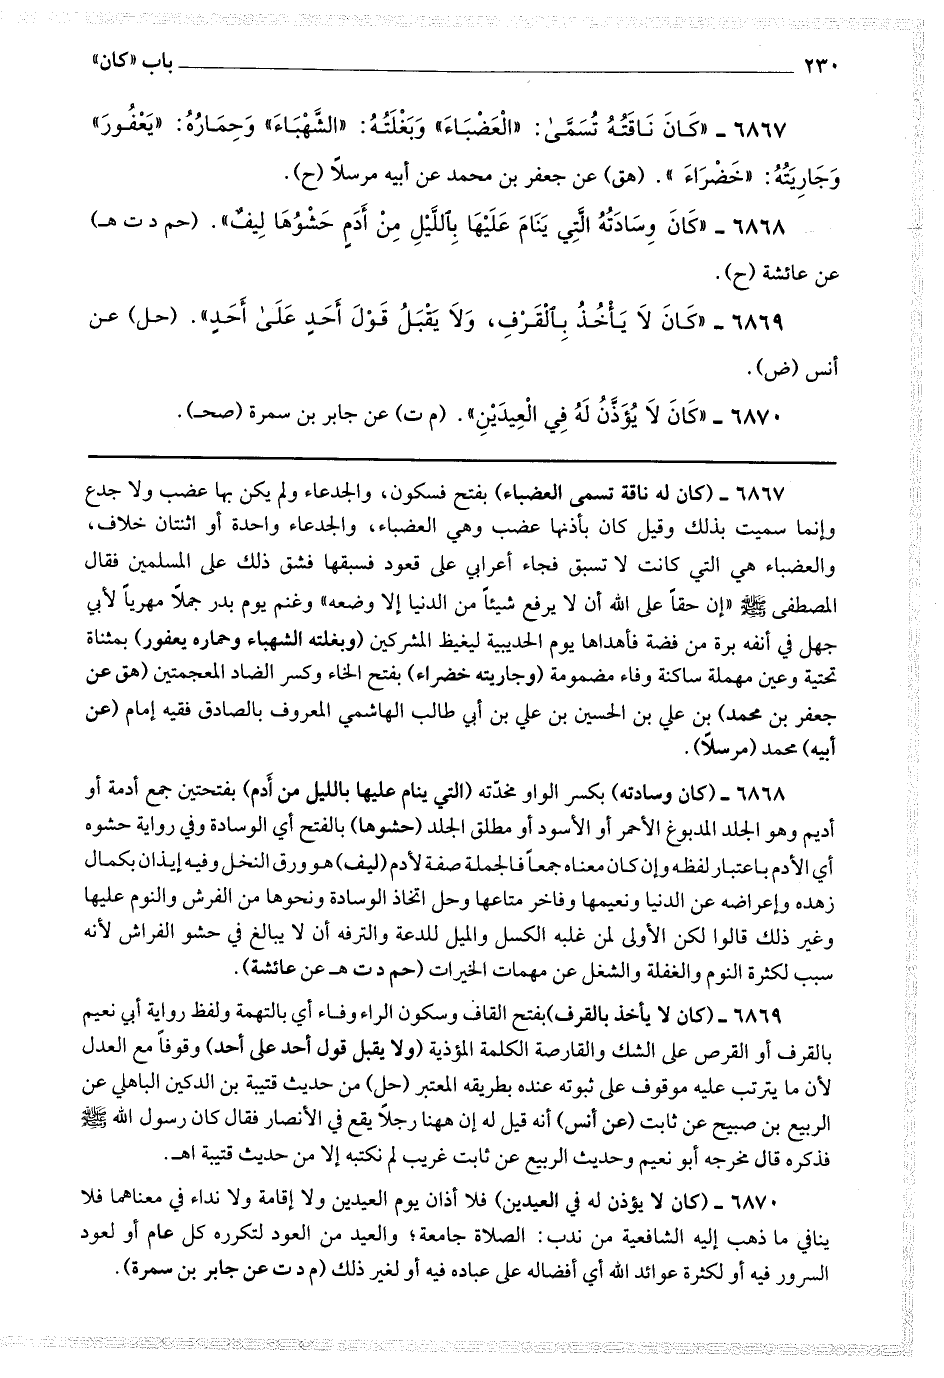 ٢٣٠ باب «كان»
٦٨٦٧ ـ «كَانَ نَاقَتُهُ تُسَمَّىٰ: «الْعَضْبَاءَ» وَبَغْلَتُهُ: «الشَّهْبَاءَ» وَحِمَارُهُ: «يَعْفُورَ»
وَجَارِيَتُهُ: «خَضْرَاءَ ». (هق) عن جعفر بن محمد عن أبيه مرسلاً (ح).
٦٨٦٨ ـ «كَانَ وِسَادَتُهُ الَّتِي يَنَامَ عَلَيْهَا بِٱللَّيْلِ مِنْ أَدَمٍ حَشْوُهَا لِيفٌ». (حم د ت هـ)
عن عائشة (ح).
٦٨٦٩ ـ «كَانَ لاَ يَأْخُذُ بِٱلْقَرْفِ، وَلاَ يَقْبَلُ قَوْلَ أَحَدٍ عَلَىٰ أَحَدٍ». (حل) عن
أنس (ض).
٦٨٧٠ ـ «كَانَ لاَ يُؤَذَّنُ لَهُ فِي الْعِيدَيْنِ». (م ت) عن جابر بن سمرة (صحـ).
٦٨٦٧ ـ (كان له ناقة تسمى العضباء) بفتح فسكون، والجدعاء ولم يكن بها عضب ولا جدع
وإنما سميت بذلك وقيل كان بأذنها عضب وهي العضباء، والجدعاء واحدة أو اثنتان خلاف،
والعضباء هي التي كانت لا تسبق فجاء أعرابي على قعود فسبقها فشق ذلك على المسلمين فقال
المصطفى ﷺ «إن حقاً على الله أن لا يرفع شيئاً من الدنيا إلا وضعه» وغنم يوم بدر جملاً مهرياً لأبي
جهل في أنفه برة من فضة فأهداها يوم الحديبية ليغيظ المشركين (وبغلته الشهباء وحماره يعفور) بمثناة
تحتية وعين مهملة ساكنة وفاء مضمومة (وجاريته خضراء) بفتح الخاء وكسر الضاد المعجمتين (هق عن
جعفر بن محمد) بن علي بن الحسين بن علي بن أبي طالب الهاشمي المعروف بالصادق فقيه إمام (عن
أبيه) محمد (مرسلاً).
٦٨٦٨ ـ (كان وسادته) بكسر الواو مخدّته (التي ينام عليها بالليل من أَدم) بفتحتين جمع أدمة أو
أديم وهو الجلد المدبوغ الأحمر أو الأسود أو مطلق الجلد (حشوها) بالفتح أي الوسادة وفي رواية حشوه
أي الأدم باعتبار لفظه وإن كان معناه جمعاً فالجملة صفة لأدم (ليف) هو ورق النخل وفيه إيذان بكمال
زهده وإعراضه عن الدنيا ونعيمها وفاخر متاعها وحل اتخاذ الوسادة ونحوها من الفرش والنوم عليها
وغير ذلك قالوا لكن الأولى لمن غلبه الكسل والميل للدعة والترفه أن لا يبالغ في حشو الفراش لأنه
سبب لكثرة النوم والغفلة والشغل عن مهمات الخيرات (حم د ت هـ عن عائشة).
٦٨٦٩ ـ (كان لا يأخذ بالقرف)بفتح القاف وسكون الراء وفاء أي بالتهمة ولفظ رواية أبي نعيم
بالقرف أو القرص على الشك والقارصة الكلمة المؤذية (ولا يقبل قول أحد على أحد) وقوفاً مع العدل
لأن ما يترتب عليه موقوف على ثبوته عنده بطريقه المعتبر (حل) من حديث قتيبة بن الدكين الباهلي عن
الربيع بن صبيح عن ثابت (عن أنس) أنه قيل له إن ههنا رجلاً يقع في الأنصار فقال كان رسول الله ﷺ
فذكره قال مخرجه أبو نعيم وحديث الربيع عن ثابت غريب لم نكتبه إلا من حديث قتيبة اهـ.
٦٨٧٠ ـ (كان لا يؤذن له في العيدين) فلا أذان يوم العيدين ولا إقامة ولا نداء في معناهما فلا
ينافي ما ذهب إليه الشافعية من ندب: الصلاة جامعة؛ والعيد من العود لتكرره كل عام أو لعود
السرور فيه أو لكثرة عوائد الله أي أفضاله على عباده فيه أو لغير ذلك (م د ت عن جابر بن سمرة).